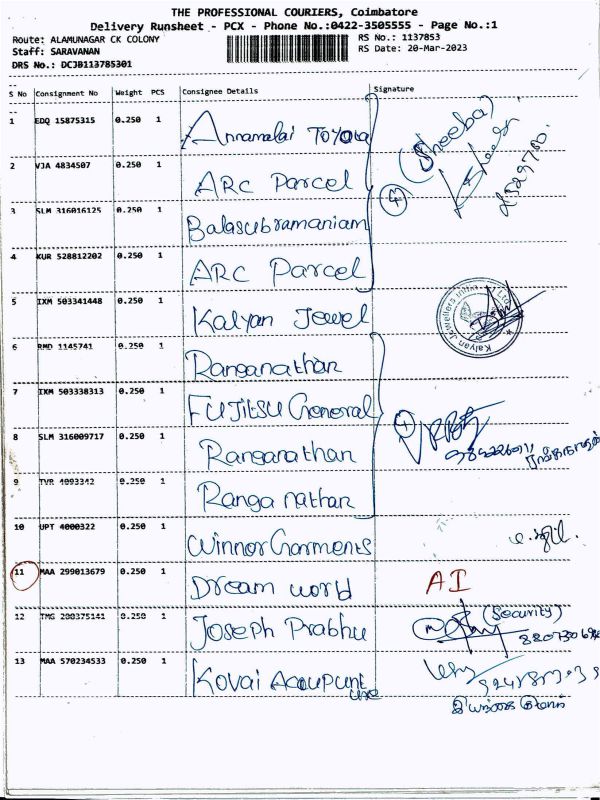 THE PROFESSIONAL COURIERS, Coimbatore
Delivery Runsheet - PCX - Phone No.:0422-3505555 - Page No.:1
Route: ALAMUNAGAR CK COLONY RS No.: 1137853
Staff: SARAVANAN RS Date: 20-Mar-2023
DRS No.: DCJB113785301
S No Consignment No Weight PCS Consignee Details Signature
1 EDQ 15875315 0.250 1 Annamalai Toyota (Sheeba)
2 VJA 4834507 0.250 1 ARC Parcel 4
3 SLM 316016125 0.250 1 Balasubramaniam
4 KUR 528812202 0.250 1 ARC Parcel
5 IXM 503341448 0.250 1 Kalyan Jewel Kalyan Jewellers India Ltd
6 RMD 1145741 0.250 1 Ranganathan
7 IXM 503338313 0.250 1 Fujitsu General
8 SLM 316009717 0.250 1 Ranganathan
9 TVR 4093342 0.250 1 Ranganathan
10 UPT 4000322 0.250 1 Winnor Garments
11 MAA 299013679 0.250 1 Dream world AI
12 TMG 200375141 0.250 1 Joseph Prabhu (Security)
13 MAA 570234533 0.250 1 Kovai Acoupunt
ure